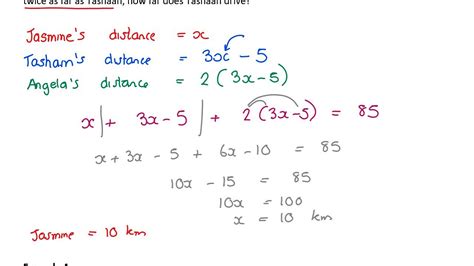 twice as far as Tashaan, how far does Tashaan drive?
Jasmine's distance = x
Tasham's distance = 3x - 5
Angela's distance = 2(3x-5)
x + 3x - 5 + 2(3x-5) = 85
x + 3x - 5 + 6x - 10 = 85
10x - 15 = 85
10x = 100
x = 10 km
Jasmine = 10 km